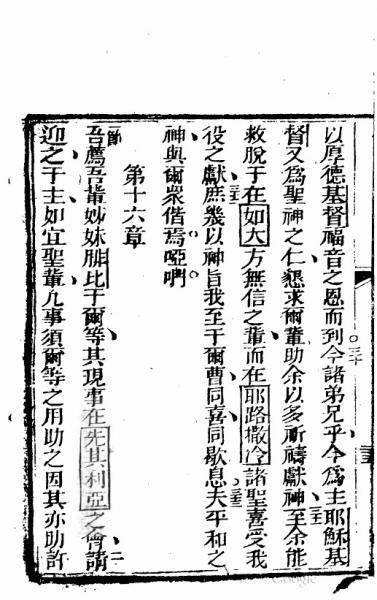 以厚德基督福音之恩而到○三十今諸弟兄乎今爲主耶穌基
督又爲聖神之仁懇求爾輩助余以多祈禱獻神三一至余能
救脫于在如大方無信之輩而在耶路撒冷諸聖喜受我
役之獻三二庶幾以神旨我至于爾曹同喜同歇息三三夫平和之
神與爾衆偕焉啞啊
第十六章
一節吾薦吾輩妙妹腓比于爾等其現事在先其利亞之會二請
迎之于主如宜聖輩凡事須爾等之用助之因其亦助許
Google